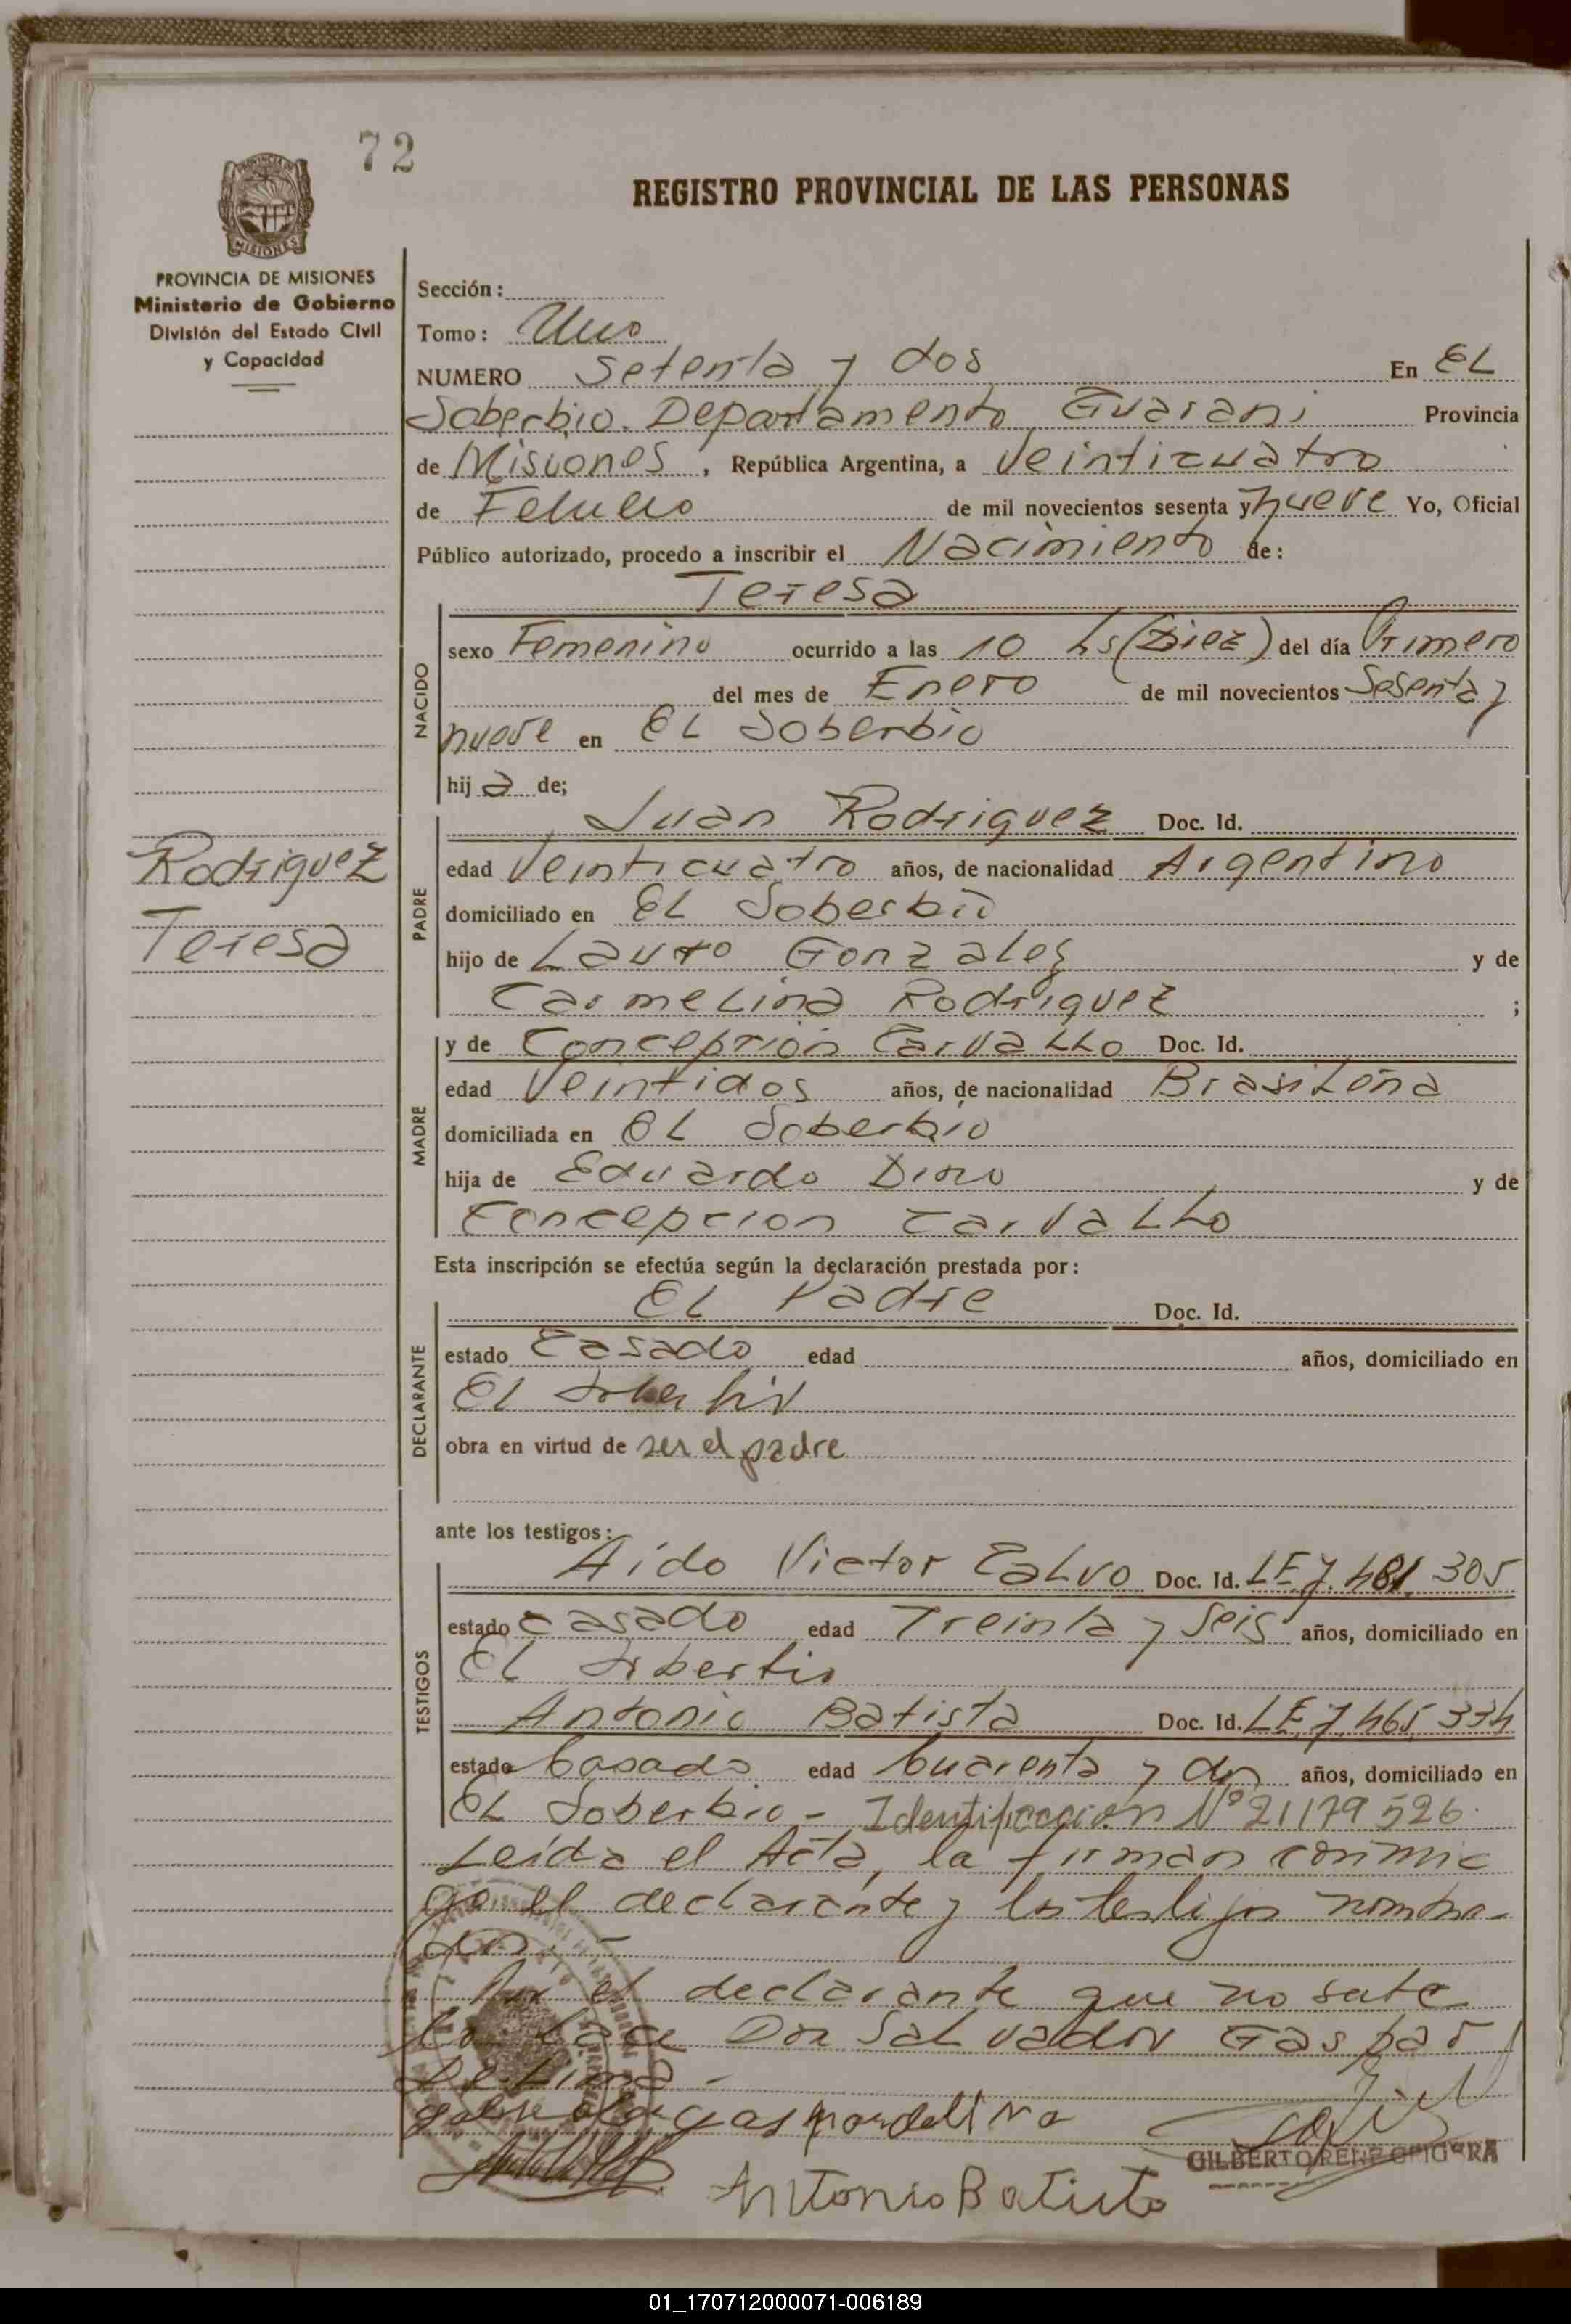 72
REGISTRO PROVINCIAL DE LAS PERSONAS
PROVINCIA DE
MISIONES
PROVINCIA DE MISIONES
Ministerio de Gobierno
División del Estado Civil
y Capacidad
Sección:
Tomo: Uno
NUMERO Setenta y dos En EL
Soberbio. Departamento Guarani Provincia
de Misiones, República Argentina, a Veinticuatro
de Febrero de mil novecientos sesenta y nueve Yo, Oficial
Público autorizado, procedo a inscribir el Nacimiento de:
NACIDO
Teresa
sexo Femenino ocurrido a las 10 hs (Diez) del día Primero
del mes de Enero de mil novecientos Sesenta y
nueve en EL Soberbio
hij a de;
Rodriguez
Teresa
PADRE
Juan Rodriguez Doc. Id.
edad Veinticuatro años, de nacionalidad Argentino
domiciliado en EL Soberbio
hijo de Lauro Gonzalez y de
Carmelina Rodriguez ;
MADRE
y de Concepción Carvallo Doc. Id.
edad Veintidos años, de nacionalidad Brasileña
domiciliada en EL Soberbio
hija de Eduardo y de
Concepcion Carvallo
Esta inscripción se efectúa según la declaración prestada por:
DECLARANTE
EL Padre Doc. Id.
estado Casado edad años, domiciliado en
El Soberbio
obra en virtud de ser el padre
ante los testigos:
TESTIGOS
Aido Victor Calvo Doc. Id. LE. 7.481.305
estado casado edad Treinta y Seis años, domiciliado en
EL Soberbio
Antonio Batista Doc. Id. LE. 7.465.334
estado Casado edad Cuarenta y dos años, domiciliado en
EL Soberbio - Identificación Nº 21179526
Leída el Acta, la firman conmi
go el declarante y los testigos nombra-
dos. -
Por el declarante que no sabe
lo hace Don Salvador Gaspar
De Lima -
Antonio Batista
GILBERTO RENE
01_170712000071-006189